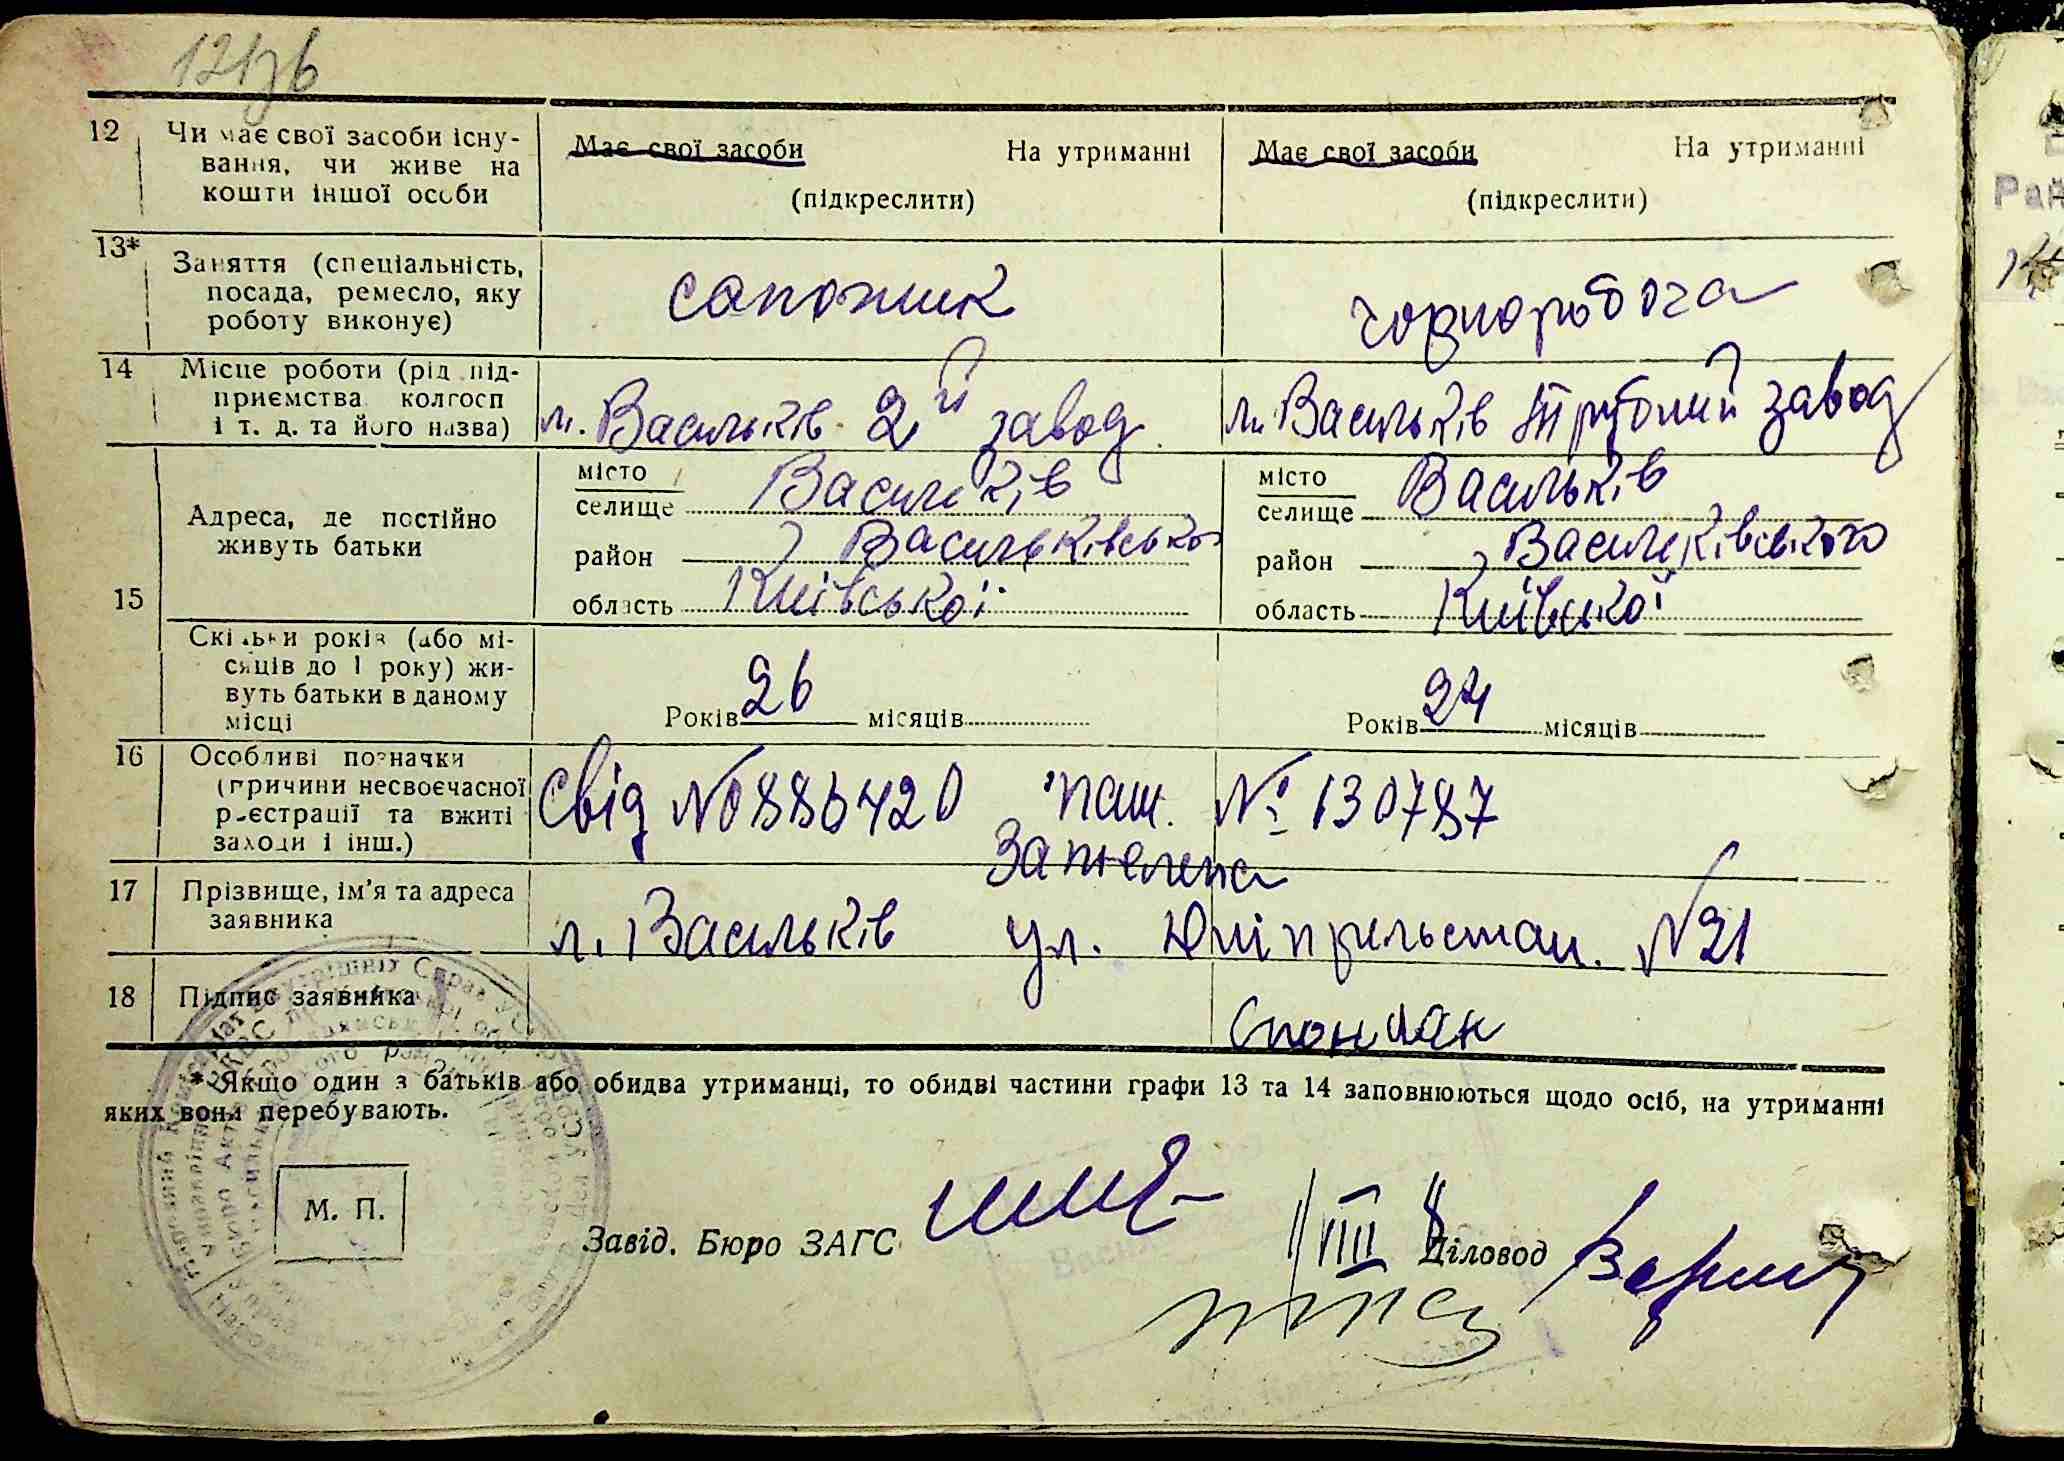 12 Чи має свої засоби існу-
вання, чи живе на
кошти іншої особи
Має свої засоби На утриманні
(підкреслити)
Має свої засоби На утриманні
(підкреслити)
13* Заняття (спеціальність,
посада, ремесло, яку
роботу виконує)
сапожник
чорноробоча
14 Місце роботи (рід під-
приємства колгосп
і т. д. та його назва)
м. Васильків 2й завод
м. Васильків завод
15
Адреса, де постійно
живуть батьки
місто
селище Васильків
район Васильківсько
область Київської
місто
селище Васильків
район Васильківського
область Київської
Скільки років (або мі-
сяців до 1 року) жи-
вуть батьки в даному
місці
Років 26 місяців
Років 24 місяців
16 Особливі позначки
(причини несвоєчасної
реєстрації та вжиті
заходи і інш.)
Свід №886420 паш. № 130787
17 Прізвище, ім'я та адреса
заявника
м. Васильків ул. №21
18 Підпис заявника
* Якщо один з батьків або обидва утриманці, то обидві частини графи 13 та 14 заповнюються щодо осіб, на утриманні
яких вони перебувають.
М. П.
Завід. Бюро ЗАГС
Діловод
Рай